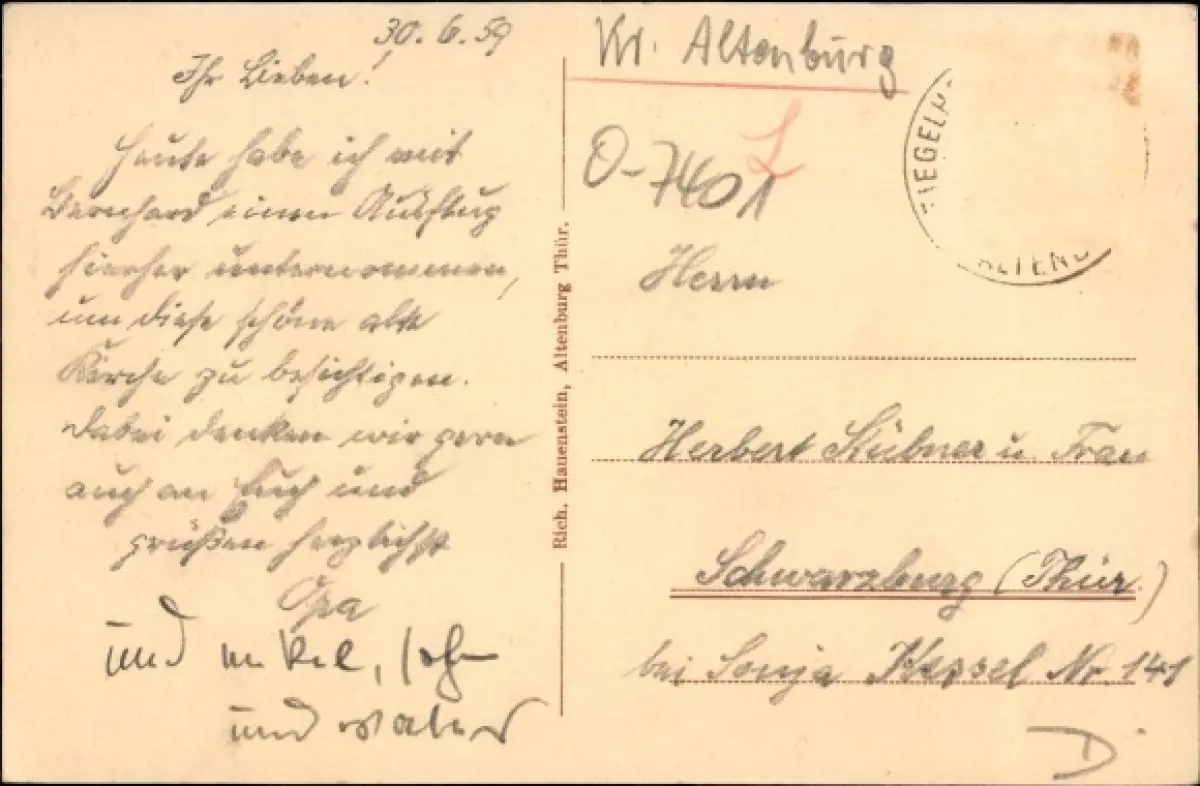 30. 6. 59
Ihr Lieben!
Heute habe ich mit
Bernhard einen Ausflug
hierher unternommen,
um diese schöne alte
Kirche zu besichtigen.
Dabei denken wir gern
auch an Euch und
grüßen herzlichst
Opa
und Enkel, Sohn
und Vater
Rich. Hauenstein, Altenburg Thür.
Kr. Altenburg
O-7401
Herrn
Herbert Kübner u. Frau
Schwarzburg (Thür.)
bei Sonja Kessel Nr. 141
D